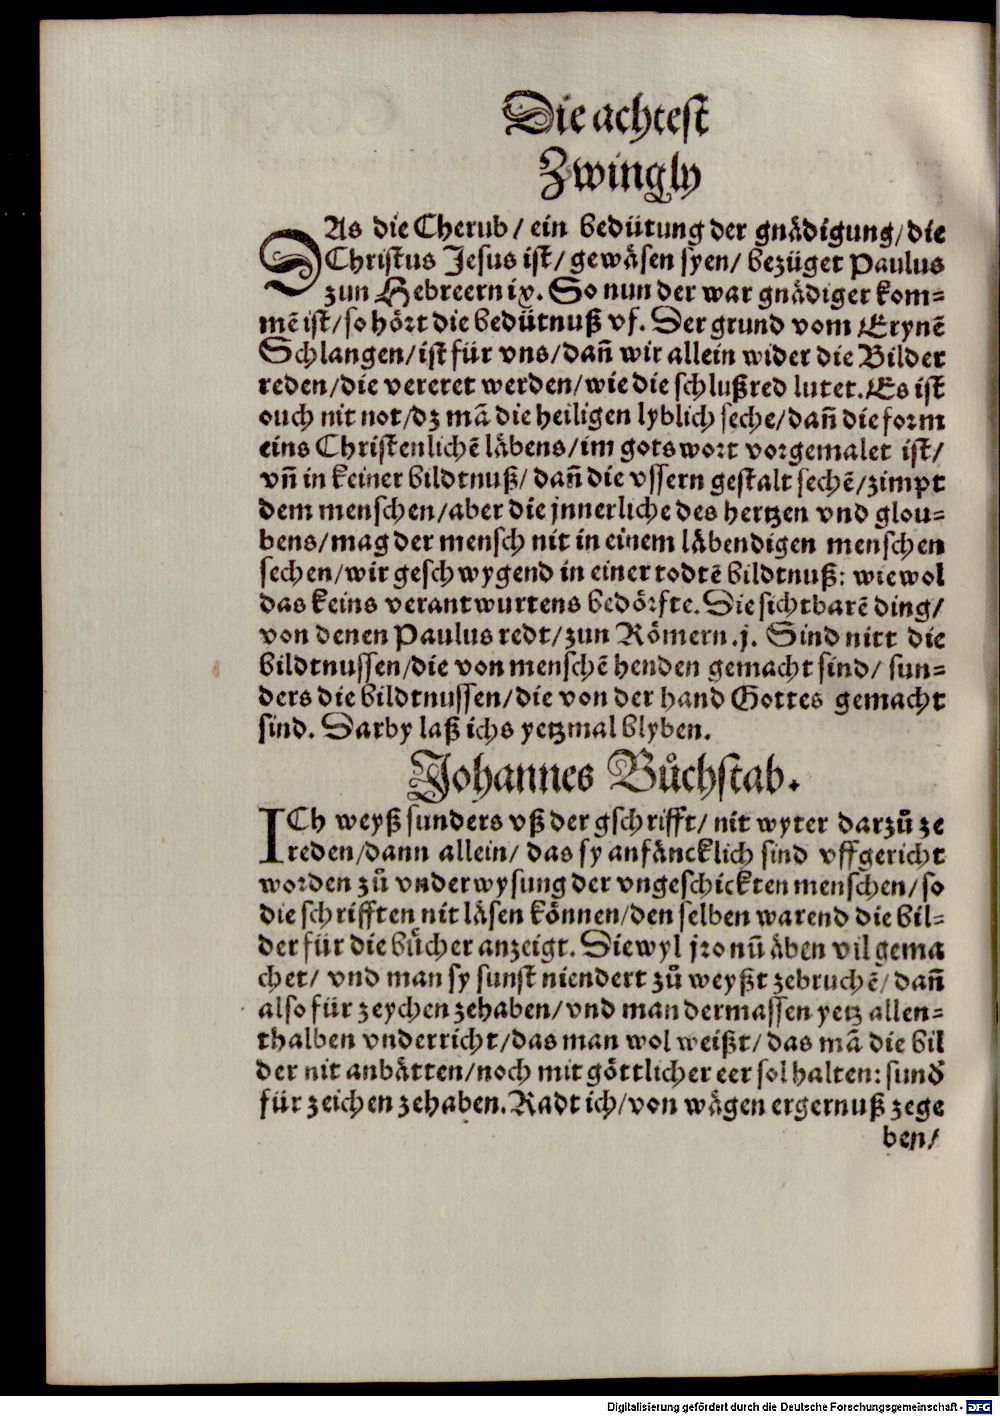 Die achtest
Zwingly
DAs die Cherub / ein bedütung der gnådigung / die
Christus Jesus ist / gewåsen syen / bezüget Paulus
zun Hebreern ix. So nun der war gnådiger kom-
mē ist / so hört die bedütnuß vf. Der grund vom Erynē
Schlangen / ist für vns / dañ wir allein wider die Bilder
reden / die vereret werden / wie die schlußred lutet. Es ist
ouch nit not / dz mā die heiligen lyblich seche / dañ die form
eins Christenlichē låbens / im gots wort vorgemalet ist /
vñ in keiner bildtnuß / dañ die vssern gestalt sechē / zimpt
dem menschen / aber die jnnerliche des hertzen vnd glou-
bens / mag der mensch nit in einem låbendigen menschen
sechen / wir geschwygend in einer todtē bildtnuß: wiewol
das keins verantwurtens bedörfte. Die sichtbarē ding /
von denen Paulus redt / zun Römern .j. Sind nitt die
bildtnussen / die von menschē henden gemacht sind / sun-
ders die bildtnussen / die von der hand Gottes gemacht
sind. Darby laß ichs yetzmal blyben.
Johannes Bůchstab.
ICh weyß sunders vß der gschrifft / nit wyter darzů ze
reden / dann allein / das sy anfåncklich sind vffgericht
worden zů vnderwysung der vngeschickten menschen / so
die schrifften nit låsen können / den selben warend die bil-
der für die bůcher anzeigt. Diewyl jro nū åben vil gema
chet / vnd man sy sunst niendert zů weyßt zebruchē / dañ
also für zeychen zehaben / vnd man dermassen yetz allen-
thalben vnderricht / das man wol weißt / das mā die bil
der nit anbåtten / noch mit göttlicher eer sol halten: sund
für zeichen zehaben. Radt ich / von wågen ergernuß zege
ben /
Digitalisierung gefördert durch die Deutsche Forschungsgemeinschaft - DFG